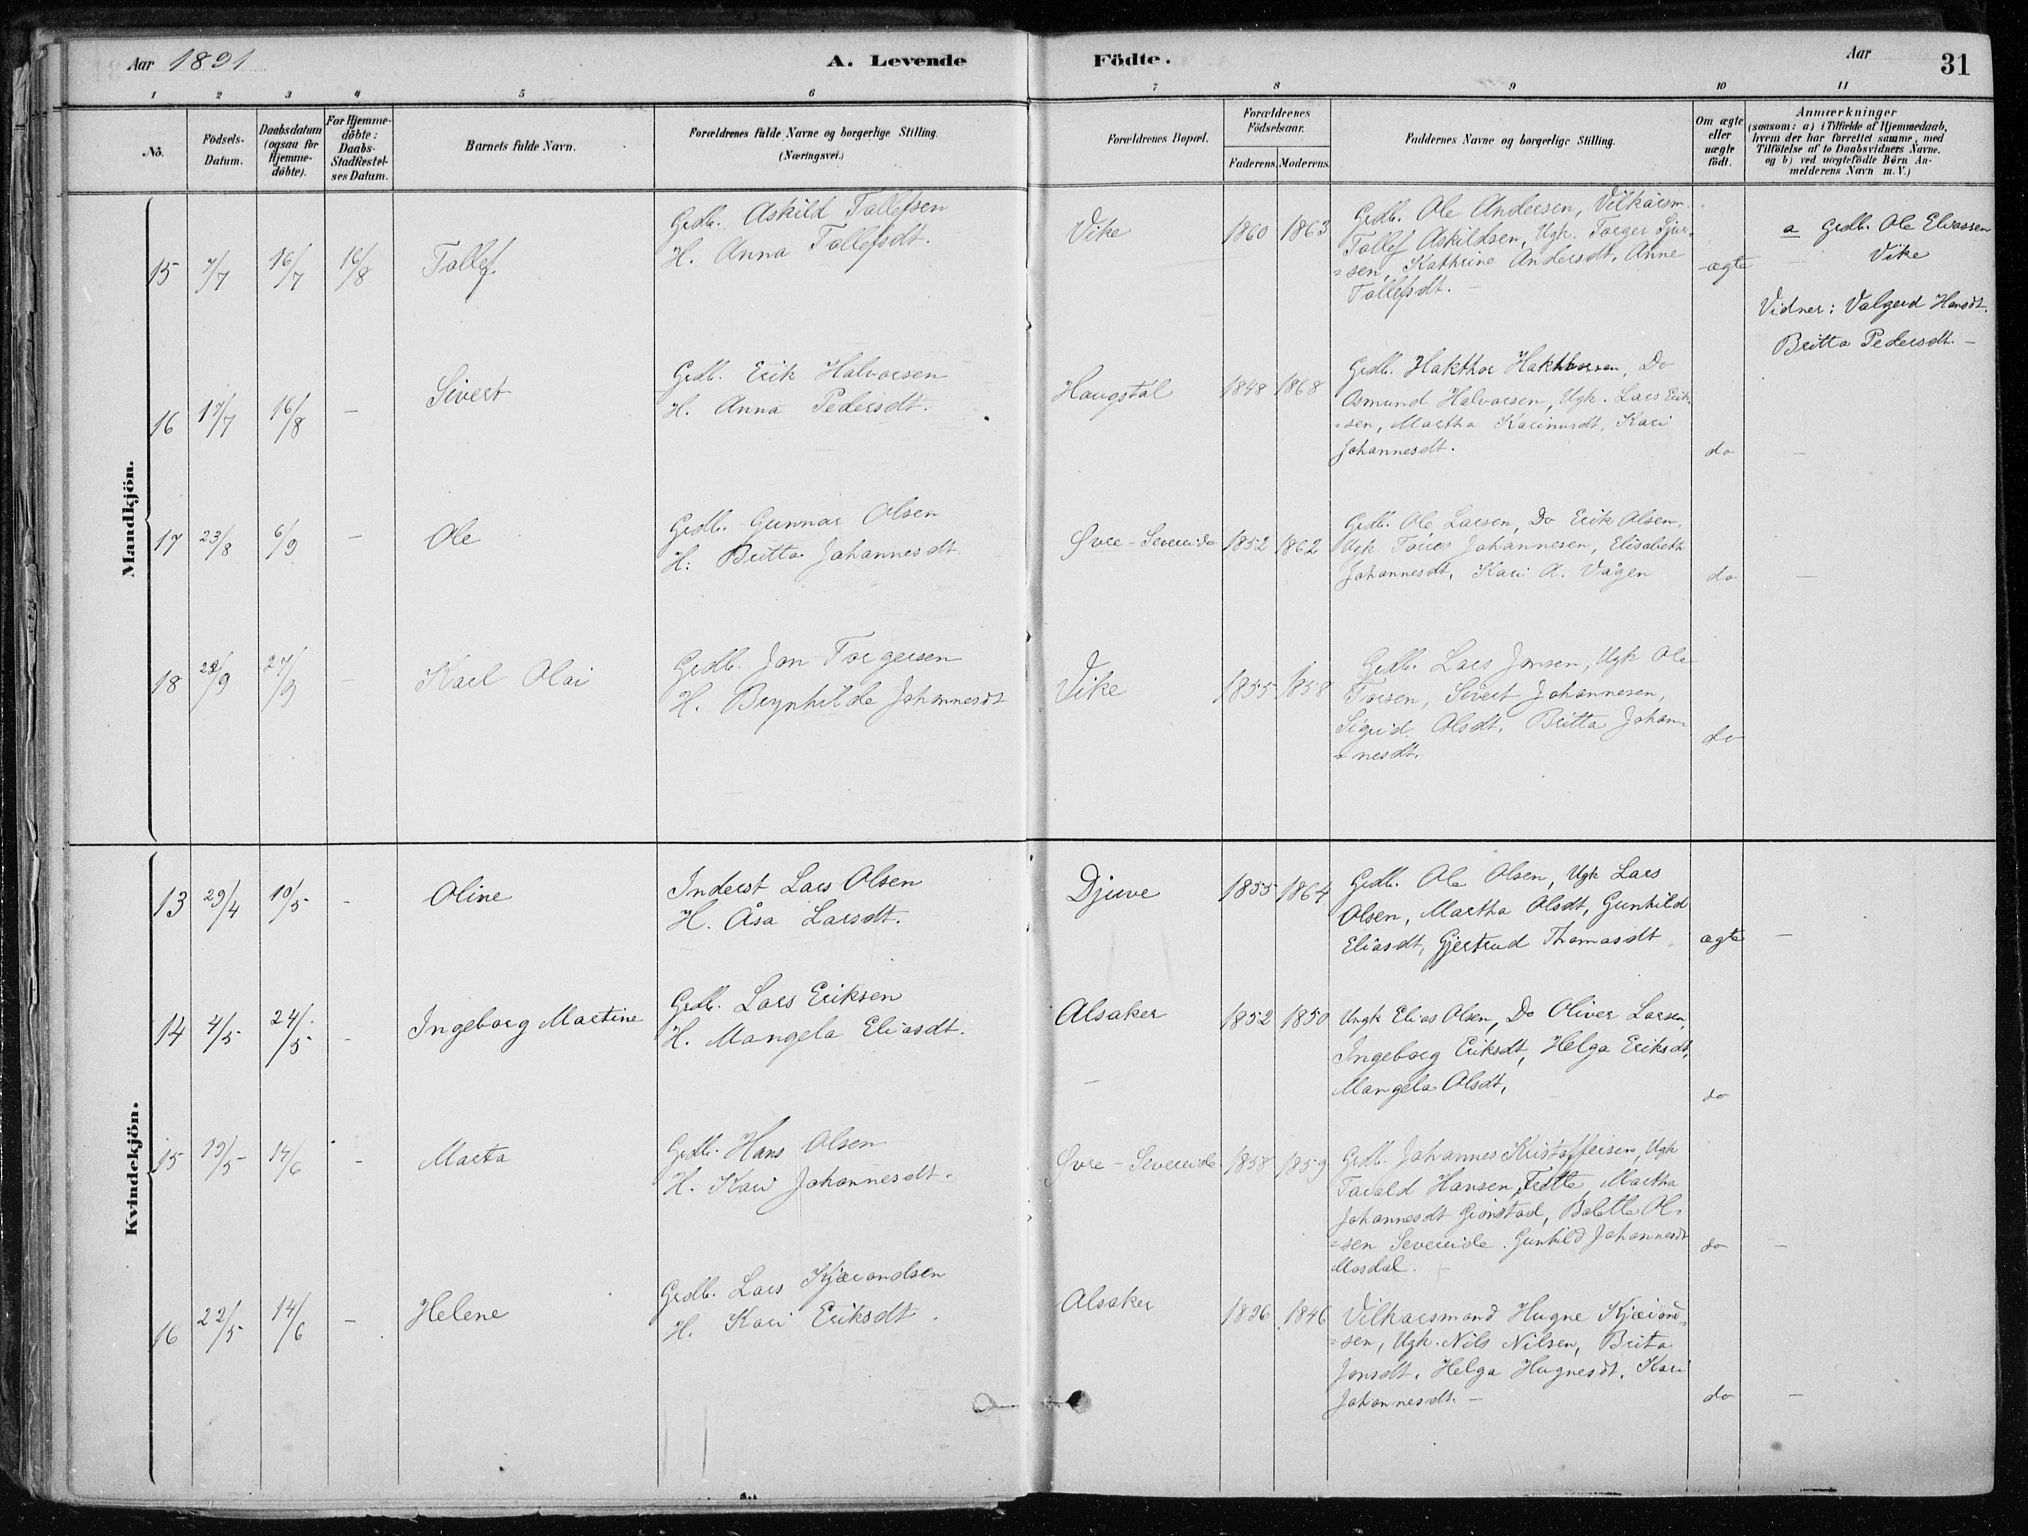 Aar 1891
A. Levende
Födte.
Aar
31
1 2 3 4 5 6 7 8 9 10 11
No.
Födsels-
Datum.
Daabsdatum
(ogsaa for
Hjemme-
döbte).
For Hjemme-
döbte:
Daabs-
Stadfæstel-
ses Datum.
Barnets fulde Navn.
Forældrenes fulde Navne og borgerlige Stilling.
(Næringsvei.)
Forældrenes Bopæl.
Forældrenes
Födselsaar.
Faderens. Moderens.
Faddernes Navne og borgerlige Stilling.
Om ægte
eller
uægte
födt.
Anmærkninger
(saasom: a) i Tilfælde af Hjemmedaab,
hvem der har forrettet samme, med
Tilföielse af to Daabsvidners Navne.
og b) ved uægtefödte Börn An-
melderens Navn m.V.)
Mandkjön.
15 7/7 16/7 16/8 Tollef.
Grdb. Askild Tollefsen
H. Anna Tollefsdt.
Vike 1860 1863
Grdb. Ole Andersen, Vilkårsm.
Tollef Askildsen, Ugk. Torger Sjur-
=sen, Kathrine Andersdt, Anne
Tollefsdt. -
ægte
a Grdb. Ole Eliassen
Vike
Vidner: Valgerd Hansdt.
Britta Pedersdt. -
16 17/7 16/8 - Sivert
Grdb. Erik Halvorsen
H. Anna Pedersdt.
Haugstal 1848 1868
Grdb. Hakthor Hakthorsen, Do
Osmund Halvorsen, Ugk. Lars Erik-
=sen, Martha Karinusdt, Kari
Johannesdt.
do -
17 23/8 6/9 - Ole
Grdb. Gunnar Olsen
H. Britta Johannesdt.
Øvre-Severeide 1852 1862
Grdb. Ole Larsen, Do Erik Olsen,
Ugk Tores Johannesen, Elisabeth
Johannesdt, Kari A. Vågen
do -
18 27/9 - Karl Olai
Grdb. Jon Torgersen
H. Brynhilde Johannesdt
Vike 1855 1858
Grdb. Lars Jonsen, Ugk Ole
Torsen, Sivert Johannesen,
Sigrid Olsdt, Britta Johan-
=nesdt.
do
Kvindekjön.
13 29/4 10/5 - Oline
Inderst Lars Olsen
H. Åsa Larsdt.
Djuve 1855 1864
Grdb. Ole Olsen, Ugk Lars
Olsen, Martha Olsdt, Gunhild
Eliasdt, Gjertrud Thomasdt
ægte -
14 4/5 24/5 - Ingeborg Martine
Grdb. Lars Eriksen
H. Mangela Eliasdt.
Alsaker 1852 1850
Ungk Elias Olsen, Do Oliver Larsen,
Ingeborg Eriksdt, Helga Eriksdt,
Mangela Olsdt,
do
15 19/5 14/6 - Marta
Grdb. Hans Olsen
H. Kari Johannesdt.
Øvre-Severeide 1858 1859
Grdb. Johannes Kristoffersen, Ugk
Tarald Hansen, Martha
Johannesdt Gionstad, Bolette Ol-
=sen Severeide. Gunhild Johannesdt
Mosdal.
do -
16 22/5 14/6 - Helene
Grdb. Lars Kjærandsen
H. Kari Eriksdt.
Alsaker 1836 1846
Vilkaarsmand Hugne Kjærand-
=sen, Ugk. Nils Nilsen, Brita
Jonsdt. Helga Hugnesdt. Kari
Johannesdt. -
do -